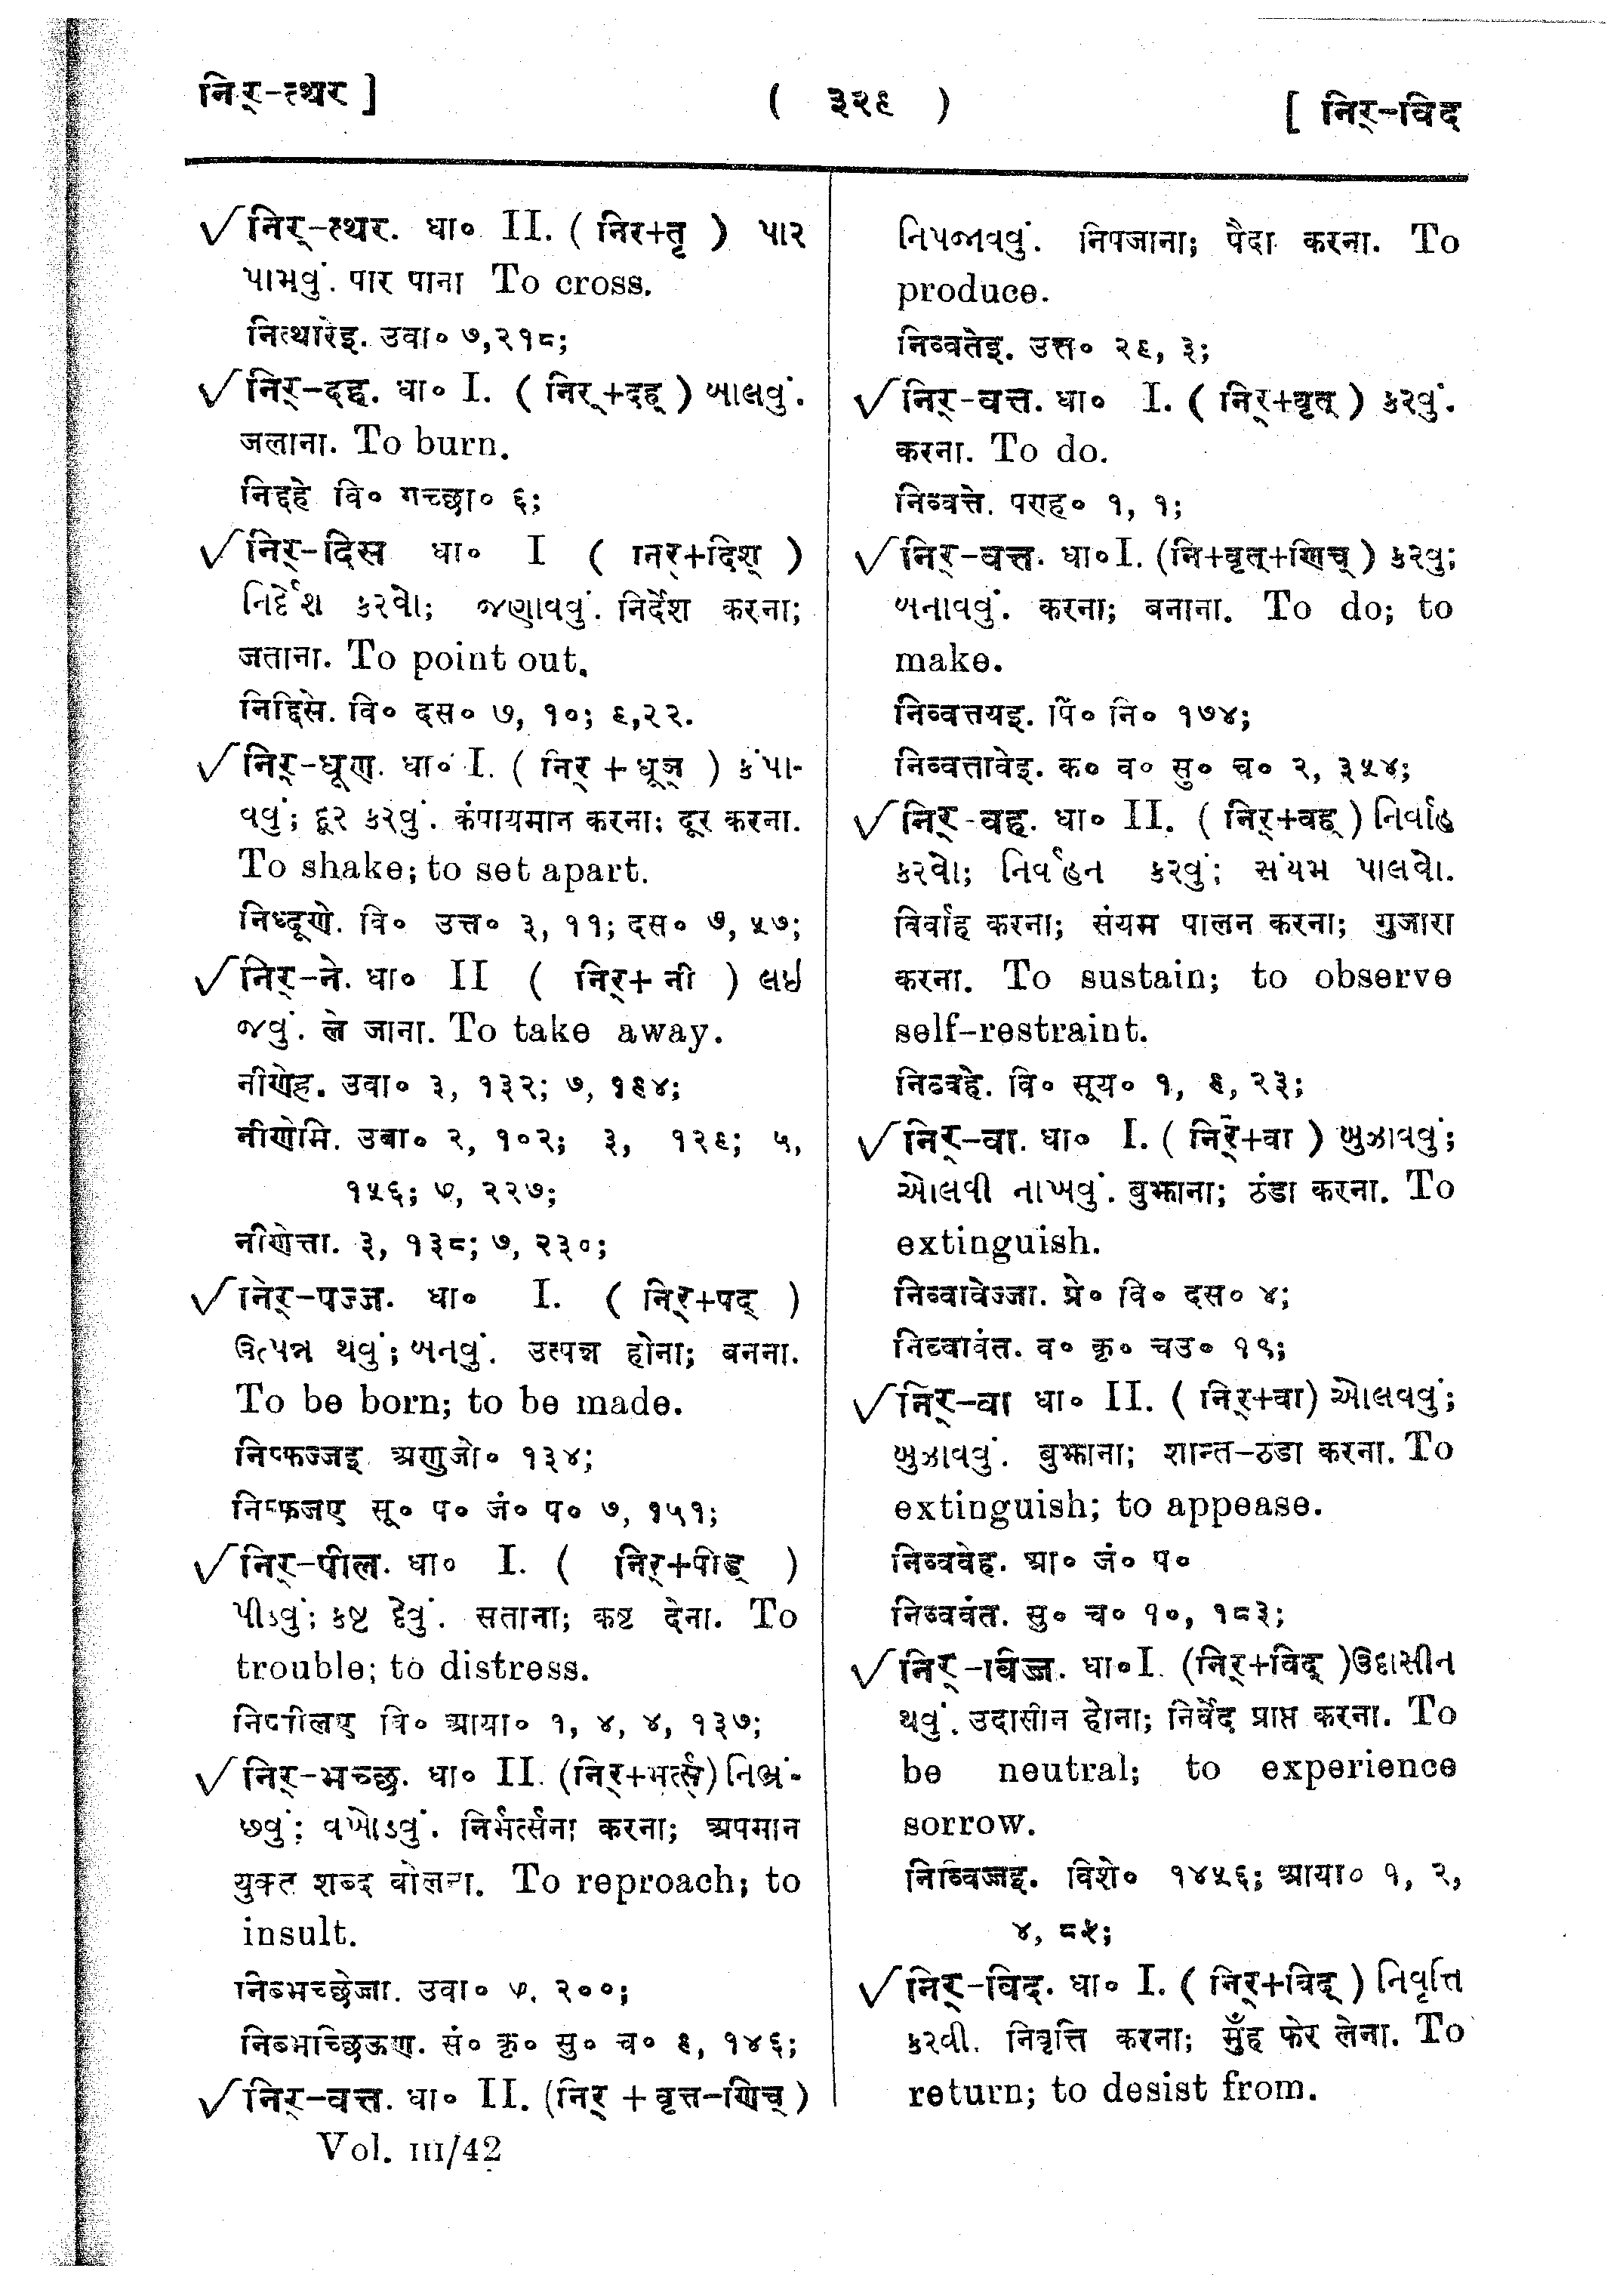 निर्-त्थर ]
( ३२९ )
[ निर्-विद्
√निर्-त्थर. धा॰ II. ( निर+तृ ) પાર
પામવું. पार पाना To cross.
नित्थारेइ. उवा॰ ७,२१८;
√निर्-दह. धा॰ I. ( निर्+दह् ) બાલવું.
जलाना. To burn.
निद्दहे वि॰ गच्छा॰ ६;
√निर्-दिस धा॰ I ( निर्+दिश् )
નિર્દેશ કરવો; જણાવવું. निर्देश करना;
जताना. To point out.
निद्दिसे. वि॰ दस॰ ७, १०; ९,२२.
√निर्-धूण. धा॰ I. ( निर् + धूञ् ) કંપા-
વવું; દૂર કરવું. कंपायमान करना; दूर करना.
To shake; to set apart.
निध्दूणे. वि॰ उत्त॰ ३, ११; दस॰ ७, ५७;
√निर्-ने. धा॰ II ( निर्+ नी ) લઇ
જવું. ले जाना. To take away.
नीणेह. उवा॰ ३, १३२; ७, १९४;
नीणेमि. उवा॰ २, १०२; ३, १२९; ५,
१५६; ७, २२७;
नीणेत्ता. ३, १३८; ७, २३०;
√निर्-पज्ज. धा॰ I. ( निर्+पद् )
ઉત્પન્ન થવું; બનવું. उत्पन्न होना; बनना.
To be born; to be made.
निप्फज्जइ अणुजो॰ १३४;
निप्फजए सू॰ प॰ जं॰ प॰ ७, १५१;
√निर्-पील. धा॰ I. ( निर्+पीड् )
પીડવું; કષ્ટ દેવું. सताना; कष्ट देना. To
trouble; to distress.
निप्पीलए वि॰ आया॰ १, ४, ४, १३७;
√निर्-भच्छ. धा॰ II. (निर्+भर्त्स्) નિભ્રં-
છવું; વખોડવું. निर्भर्त्सना करना; अपमान
युक्त शब्द बोलना. To reproach; to
insult.
निब्भच्छेज्जा. उवा॰ ७. २००;
निब्भच्छिऊण. सं॰ कृ॰ सु॰ च॰ ९, १४६;
√निर्-वत्त. धा॰ II. (निर् + वृत्त-णिच्)
Vol. III/42
નિપજાવવું. निपजाना; पैदा करना. To
produce.
निव्वतेइ. उत्त॰ २९, ३;
√निर्-वत्त. धा॰ I. ( निर्+वृत् ) કરવું.
करना. To do.
निव्वत्ते. पण्ह॰ १, १;
√निर्-वत्त. धा॰ I. (नि+वृत्+णिच्) કરવુ;
બનાવવું. करना; बनाना. To do; to
make.
निव्वत्तयइ. पिं॰ नि॰ १७४;
निव्वत्तावेइ. क॰ व॰ सु॰ च॰ २, ३५४;
√निर्-वह. धा॰ II. ( निर्+वह् ) નિર્વાહ
કરવો; નિર્વહન કરવું; સંયમ પાલવો.
विर्वाह करना; संयम पालन करना; गुजारा
करना. To sustain; to observe
self-restraint.
निव्वहे. वि॰ सूय॰ १, ९, २३;
√निर्-वा. धा॰ I. ( निर्+वा ) બુઝાવવું;
ઓલવી નાખવું. बुझाना; ठंडा करना. To
extinguish.
निव्वावेज्जा. प्रे॰ वि॰ दस॰ ४;
निव्वावंत. व॰ कृ॰ चउ॰ १९;
√निर्-वा धा॰ II. ( निर्+वा) ઓલવવું;
બુઝાવવું. बुझाना; शान्त-ठडा करना. To
extinguish; to appease.
निव्ववेह. आ॰ जं॰ प॰
निव्ववंत. सु॰ च॰ १०, १८३;
√निर्-विज्ज. धा॰ I. (निर्+विद्)ઉદાસીન
થવું. उदासीन होना; निर्वेद प्राप्त करना. To
be neutral; to experience
sorrow.
निव्विज्जइ. विशे॰ १४५६; आया॰ १, २,
४, ८५;
√निर्-विद्. धा॰ I. ( निर्+विद् ) નિવૃત્તિ
કરવી. निवृत्ति करना; मुँह फेर लेना. To
return; to desist from.